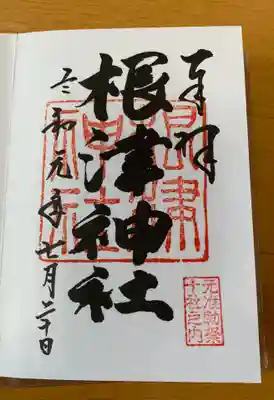 奉拝
根津神社
根津神社
令和元年七月二十日
元准勅祭
十社之内